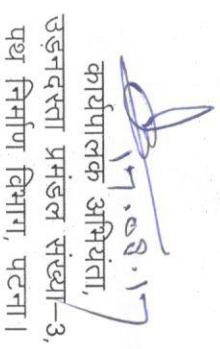 17.08.17
कार्यपालक अभियंता,
उड़नदस्ता प्रमंडल संख्या-3,
पथ निर्माण विभाग, पटना।